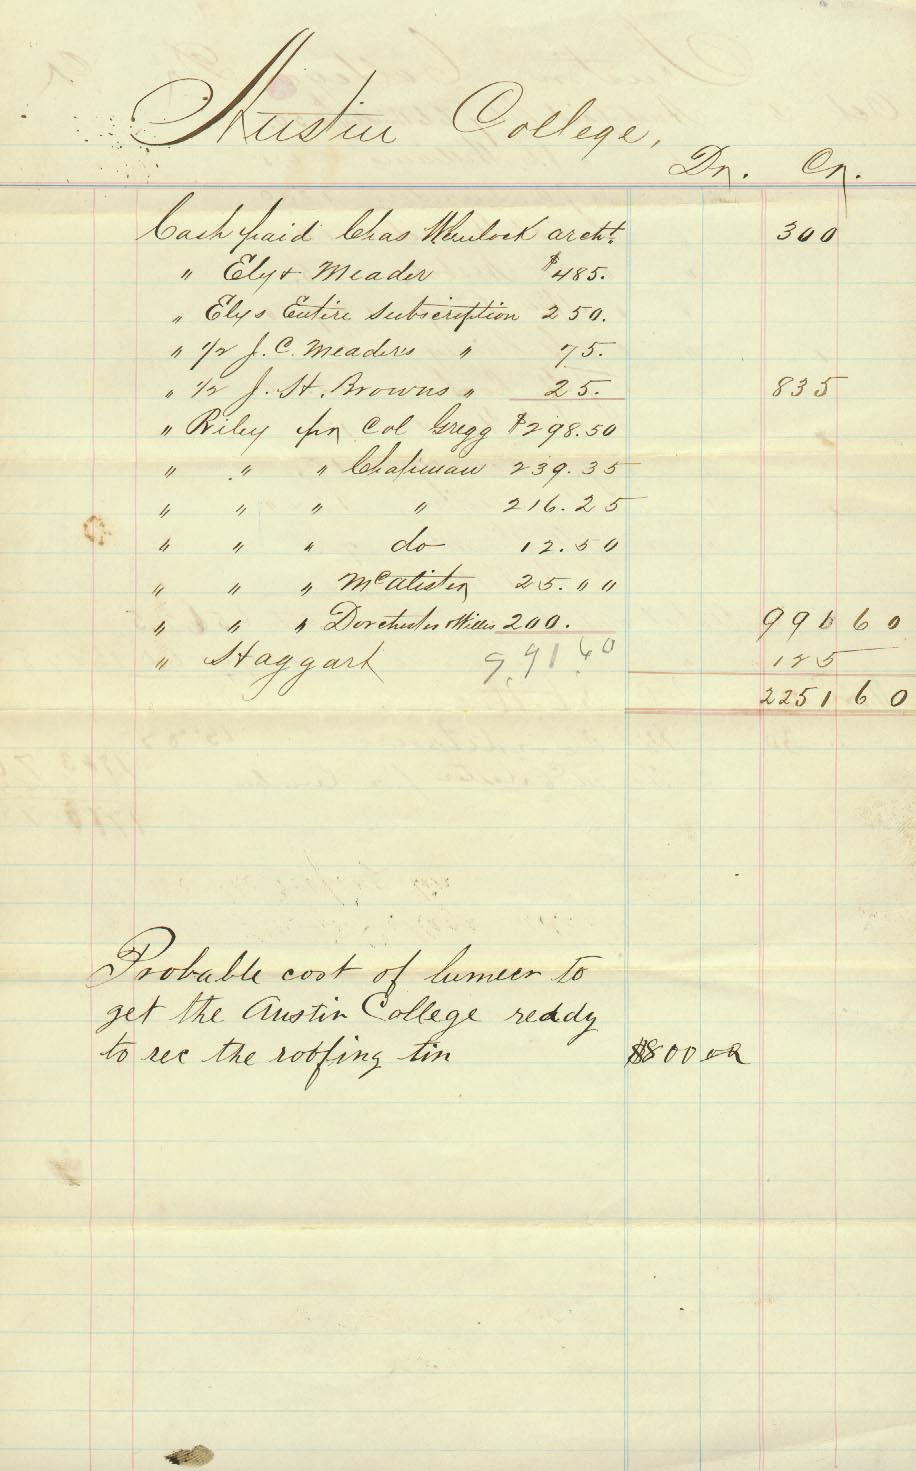 Austin College,
Dr. Cr.
Cash paid Chas Wheelock archt. 300
" Ely & Meader $485.
" Elys Entire Subscription 250.
" 1/2 J. C. Meaders " 75.
" 1/2 J. H. Browns " 25. 835
" Riley pr Col Gregg $298.50
" " " Chapman 239.35
" " " " 216.25
" " " do 12.50
" " " McAlister 25.00
" " " Dorchester & Willis 200. 991 60
" Haggart 9,91.60 125
2251 60
Probable cost of lumeer to
get the Austin College ready
to rec the roofing tin $800